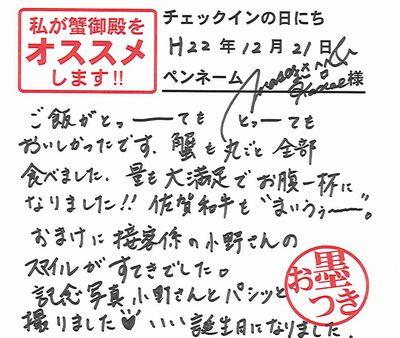 私が蟹御殿を
オススメ
します!!
チェックインの日にち
H22年12月21日
ペンネーム 様
ご飯がとっーても とっーても
おいしかったです。蟹も丸ごと全部
食べました。量も大満足でお腹一杯に
なりました!! 佐賀和牛も"まいうぅー"。
おまけに接客係の小野さんの
スマイルがすてきでした。
記念写真小野さんとパシッと
撮りました♥いい誕生日になりました。
お墨つき